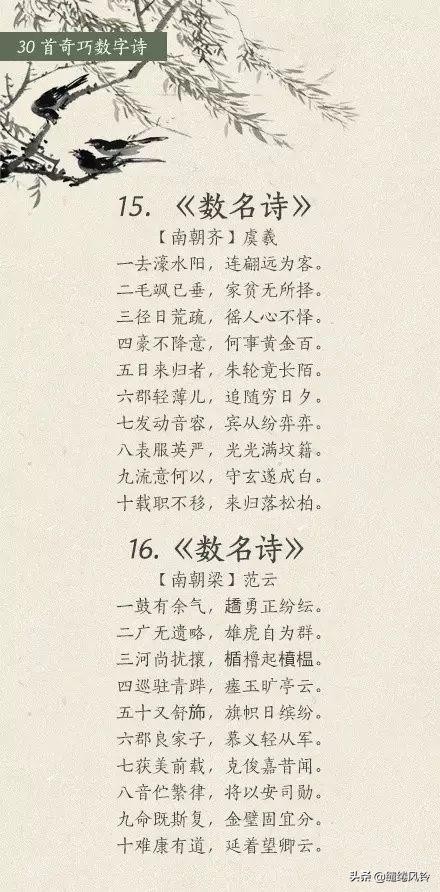 30 首奇巧数字诗
15.《数名诗》
【南朝齐】虞羲
一去濠水阳，连翩远为客。
二毛飒已垂，家贫无所择。
三径日荒疏，徭人心不怿。
四豪不降意，何事黄金百。
五日来归者，朱轮竟长陌。
六郡轻薄儿，追随穷日夕。
七发动音容，宾从纷弈弈。
八表服英严，光光满坟籍。
九流意何以，守玄遂成白。
十载职不移，来归落松柏。
16.《数名诗》
【南朝梁】范云
一鼓有余气，趫勇正纷纭。
二广无遗略，雄虎自为群。
三河尚扰攘，楯橹起槓榅。
四巡驻青跸，瘗玉旷亭云。
五十又舒斾，旗帜日缤纷。
六郡良家子，慕义轻从军。
七获美前载，克俊嘉昔闻。
八音伫繁律，将以安司勋。
九命既斯复，金璧固宜分。
十难康有道，延着望卿云。
头条 @缠绻风铃